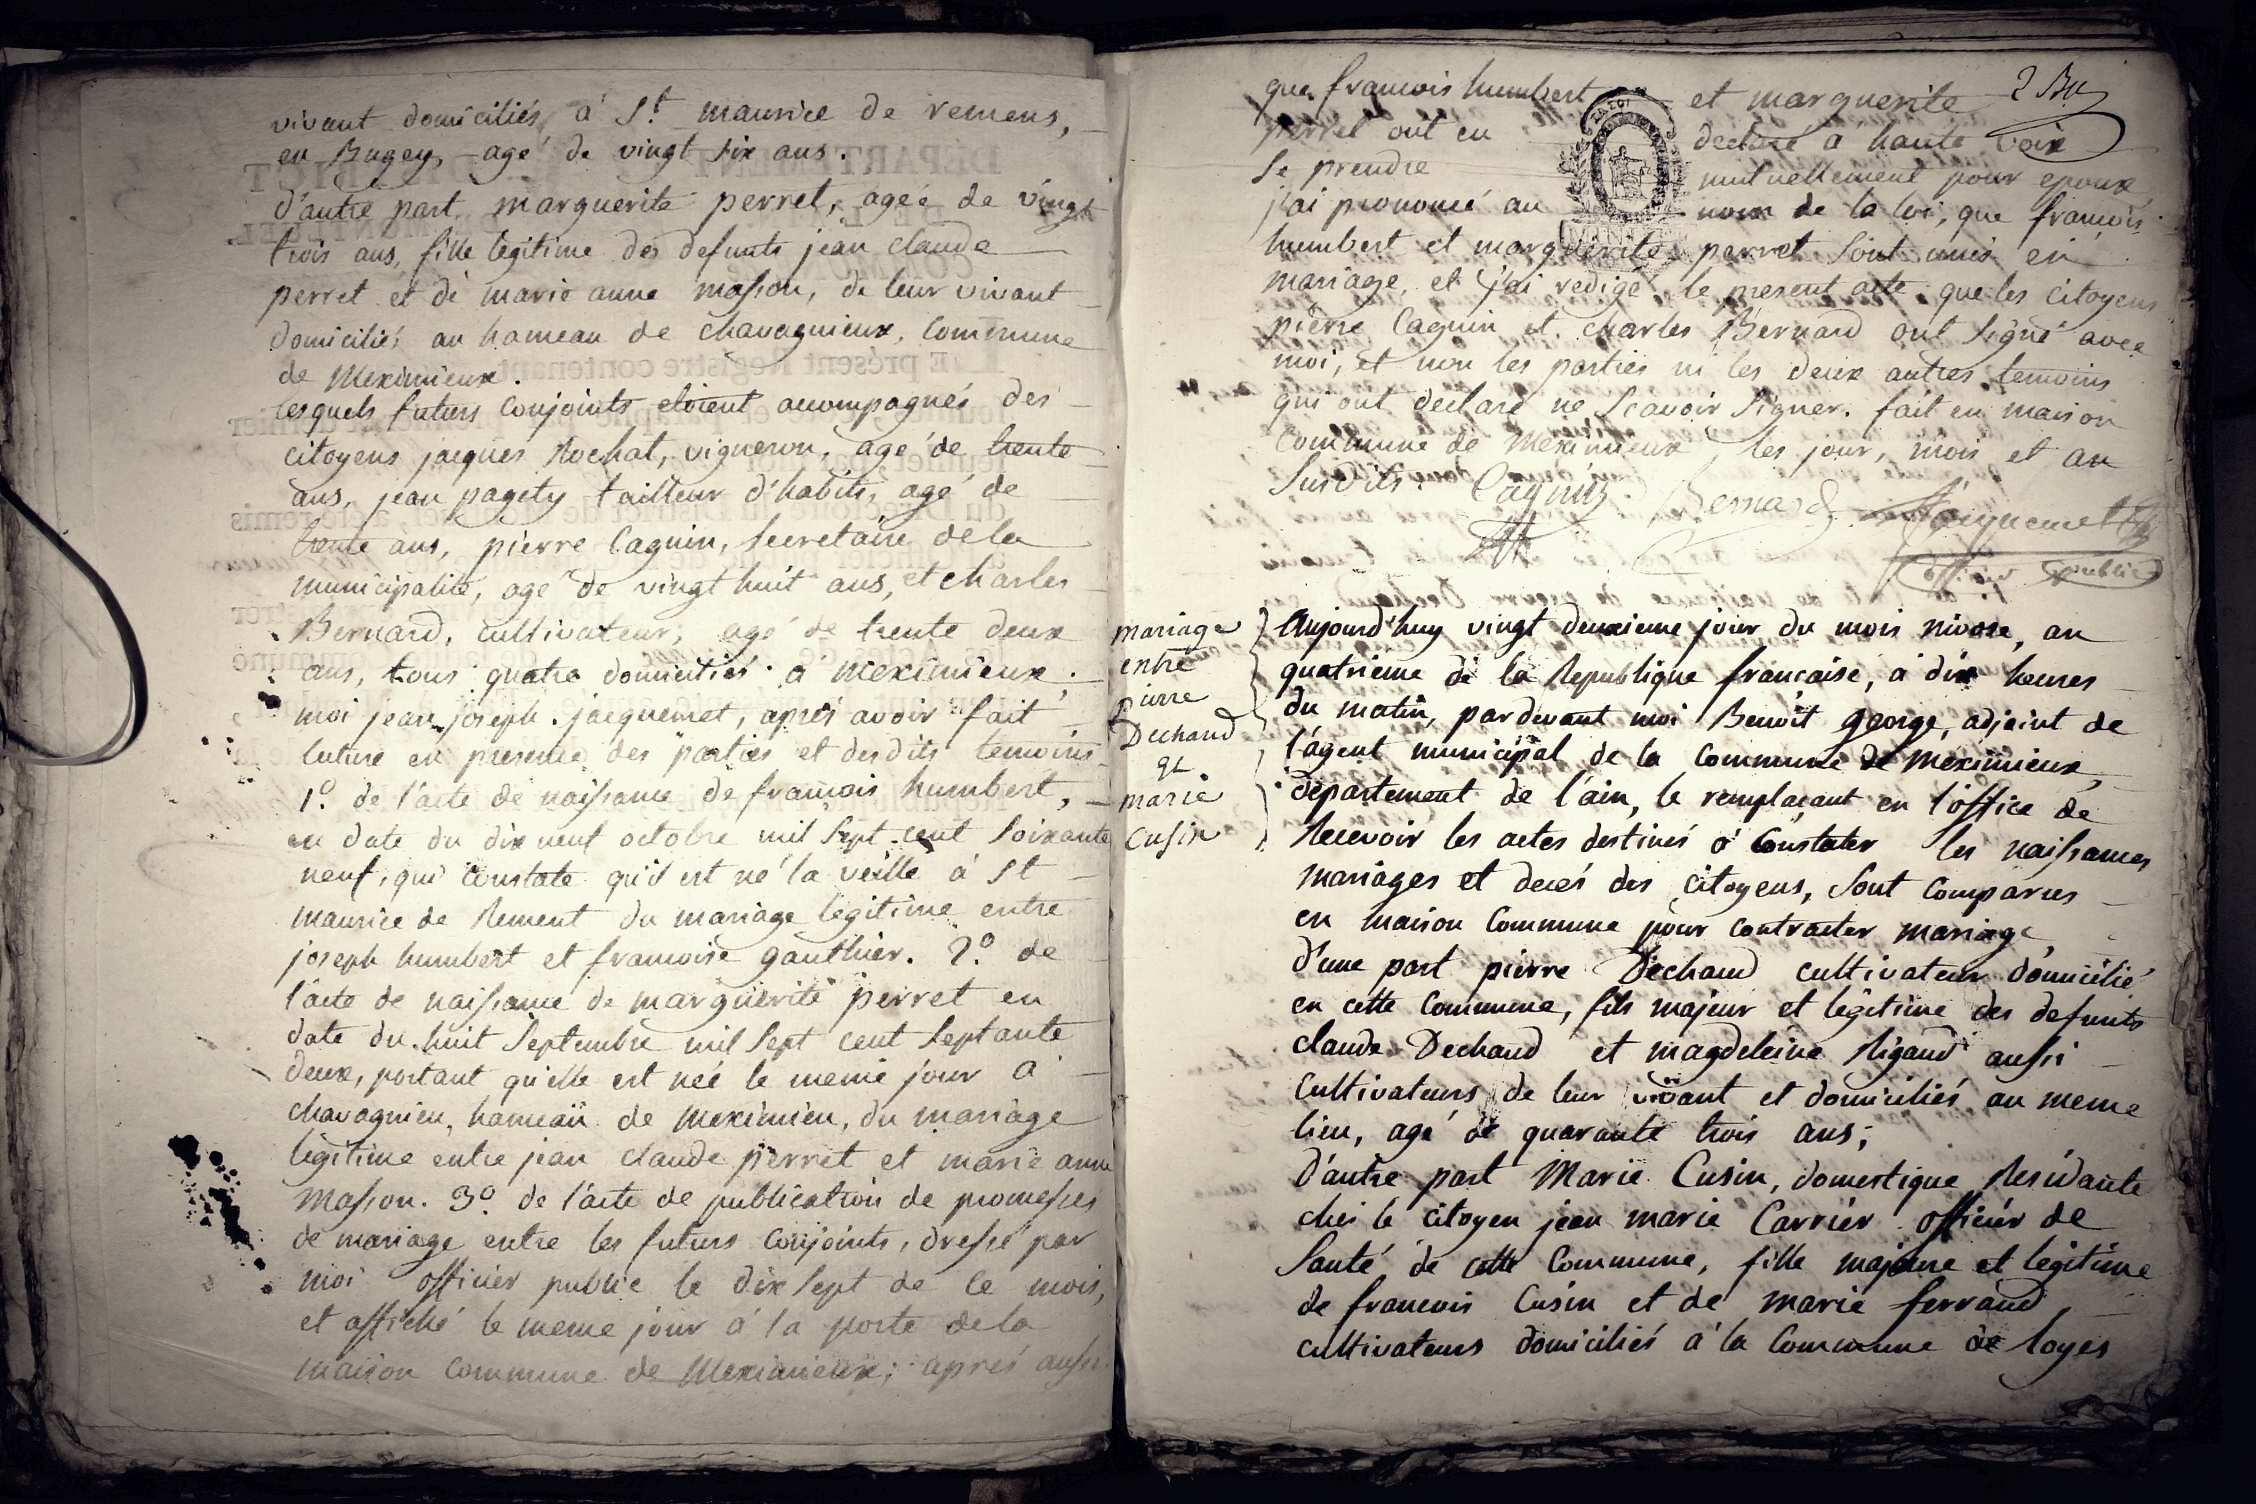 vivant domiciliés à St. maurice de remens,
en Bugey, agé de vingt six ans.
d'autre part marguerite perret, ageé de vingt
trois ans, fille legitime des defunts jean claude
perret et de marie anne masson, de leur vivant
domiciliés au hameau de chavagnieux, Commune
de Meximieux.
lesquels futurs conjoints etoient accompagnés des
citoyens jacques Rochat, vigneron, agé de trente
ans, jean pagety tailleur d'habits, agé de
trente ans, pierre Caguin, secretaire de la
municipalité, agé de vingt huit ans, et charles
Bernard, cultivateur, agé de trente deux
ans, tous quatre domiciliés à meximieux.
moi jean joseph jacquemet, après avoir fait
lecture en presence des parties et desdits temoins
1º. de l'acte de naissance de francois humbert,
en date du dix neuf octobre mil sept cent soixante
neuf, qui constate qu'il est né la veille à St
maurice de Rement du mariage legitime entre
joseph humbert et francoise gauthier. 2º. de
l'acte de naissance de marguerite perret en
date du huit Septembre mil sept cent septante
deux, portant qu'elle est neé le meme jour à
chavagnieu, hameau de meximieu, du mariage
legitime entre jean claude perret et marie anne
Masson. 3º. de l'acte de publication de promesses
de mariage entre les futurs conjoints, dressé par
moi officier public le dix sept de ce mois,
et affiché le meme jour à la porte de la
maison commune de Meximieux; après aussi
2
que francois humbert et marguerite
perret ont eu declaré à haute voix
se prendre mutuellement pour epoux,
j'ai prononcé au nom de la loi, que francois
humbert et marguerite perret sont unis en
mariage, et j'ai redigé le present acte que les citoyens
pierre Caguin et charles Bernard ont signé avec
moi, et non les parties ni les deux autres temoins
qui ont declaré ne scavoir signer. fait en maison
commune de meximieux, les jour, mois et an
susdits. Caguin Bernard Jacquemet
officier public
mariage
entre
pierre
Dechaud
et
marie
Cusin
Aujourd'huy vingt deuxieme jour du mois nivose, an
quatrieme de la Republique francaise, à dix heures
du matin, pardevant moi Benoît george, adjoint de
l'agent municipal de la commune de meximieux,
departement de l'ain, le remplacant en l'office de
Recevoir les actes destinés à Constater les naissances
mariages et decés des citoyens, sont comparus
en maison commune pour contracter mariage
d'une part pierre Dechaud cultivateur domicilié
en cette commune, fils majeur et legitime des defunts
claude Dechaud et magdeleine Rigaud aussi
cultivateurs de leur vivant et domiciliés au meme
lieu, agé de quarante trois ans;
d'autre part Marie Cusin, domestique Residante
chés le citoyen jean marie Carrier officier de
santé de cette commune, fille majeure et legitime
de francois Cusin et de marie ferraud,
cultivateurs domiciliés à la commune de loyes